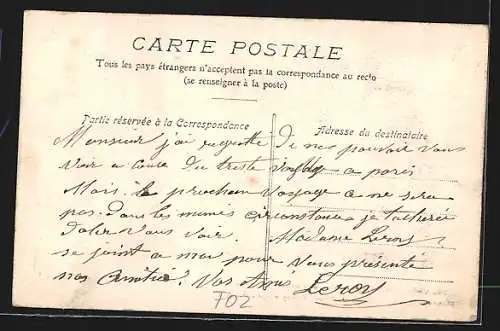 CARTE POSTALE
Tous les pays étrangers n'acceptent pas la correspondance au recto
(se renseigner à la poste)
Partie réservée à la Correspondance
Adresse du destinataire
Monsieur j'ai regretté de ne pouvoir vous
voir a cause du triste voyage a paris
Mais le prochain voyage a ne sera
pas dans les mêmes circonstances je tacherai
d'aler vous voir. Madame Leroy
se joint a moi pour vous présenté
nos amitié. Vos amis Leroy
T02